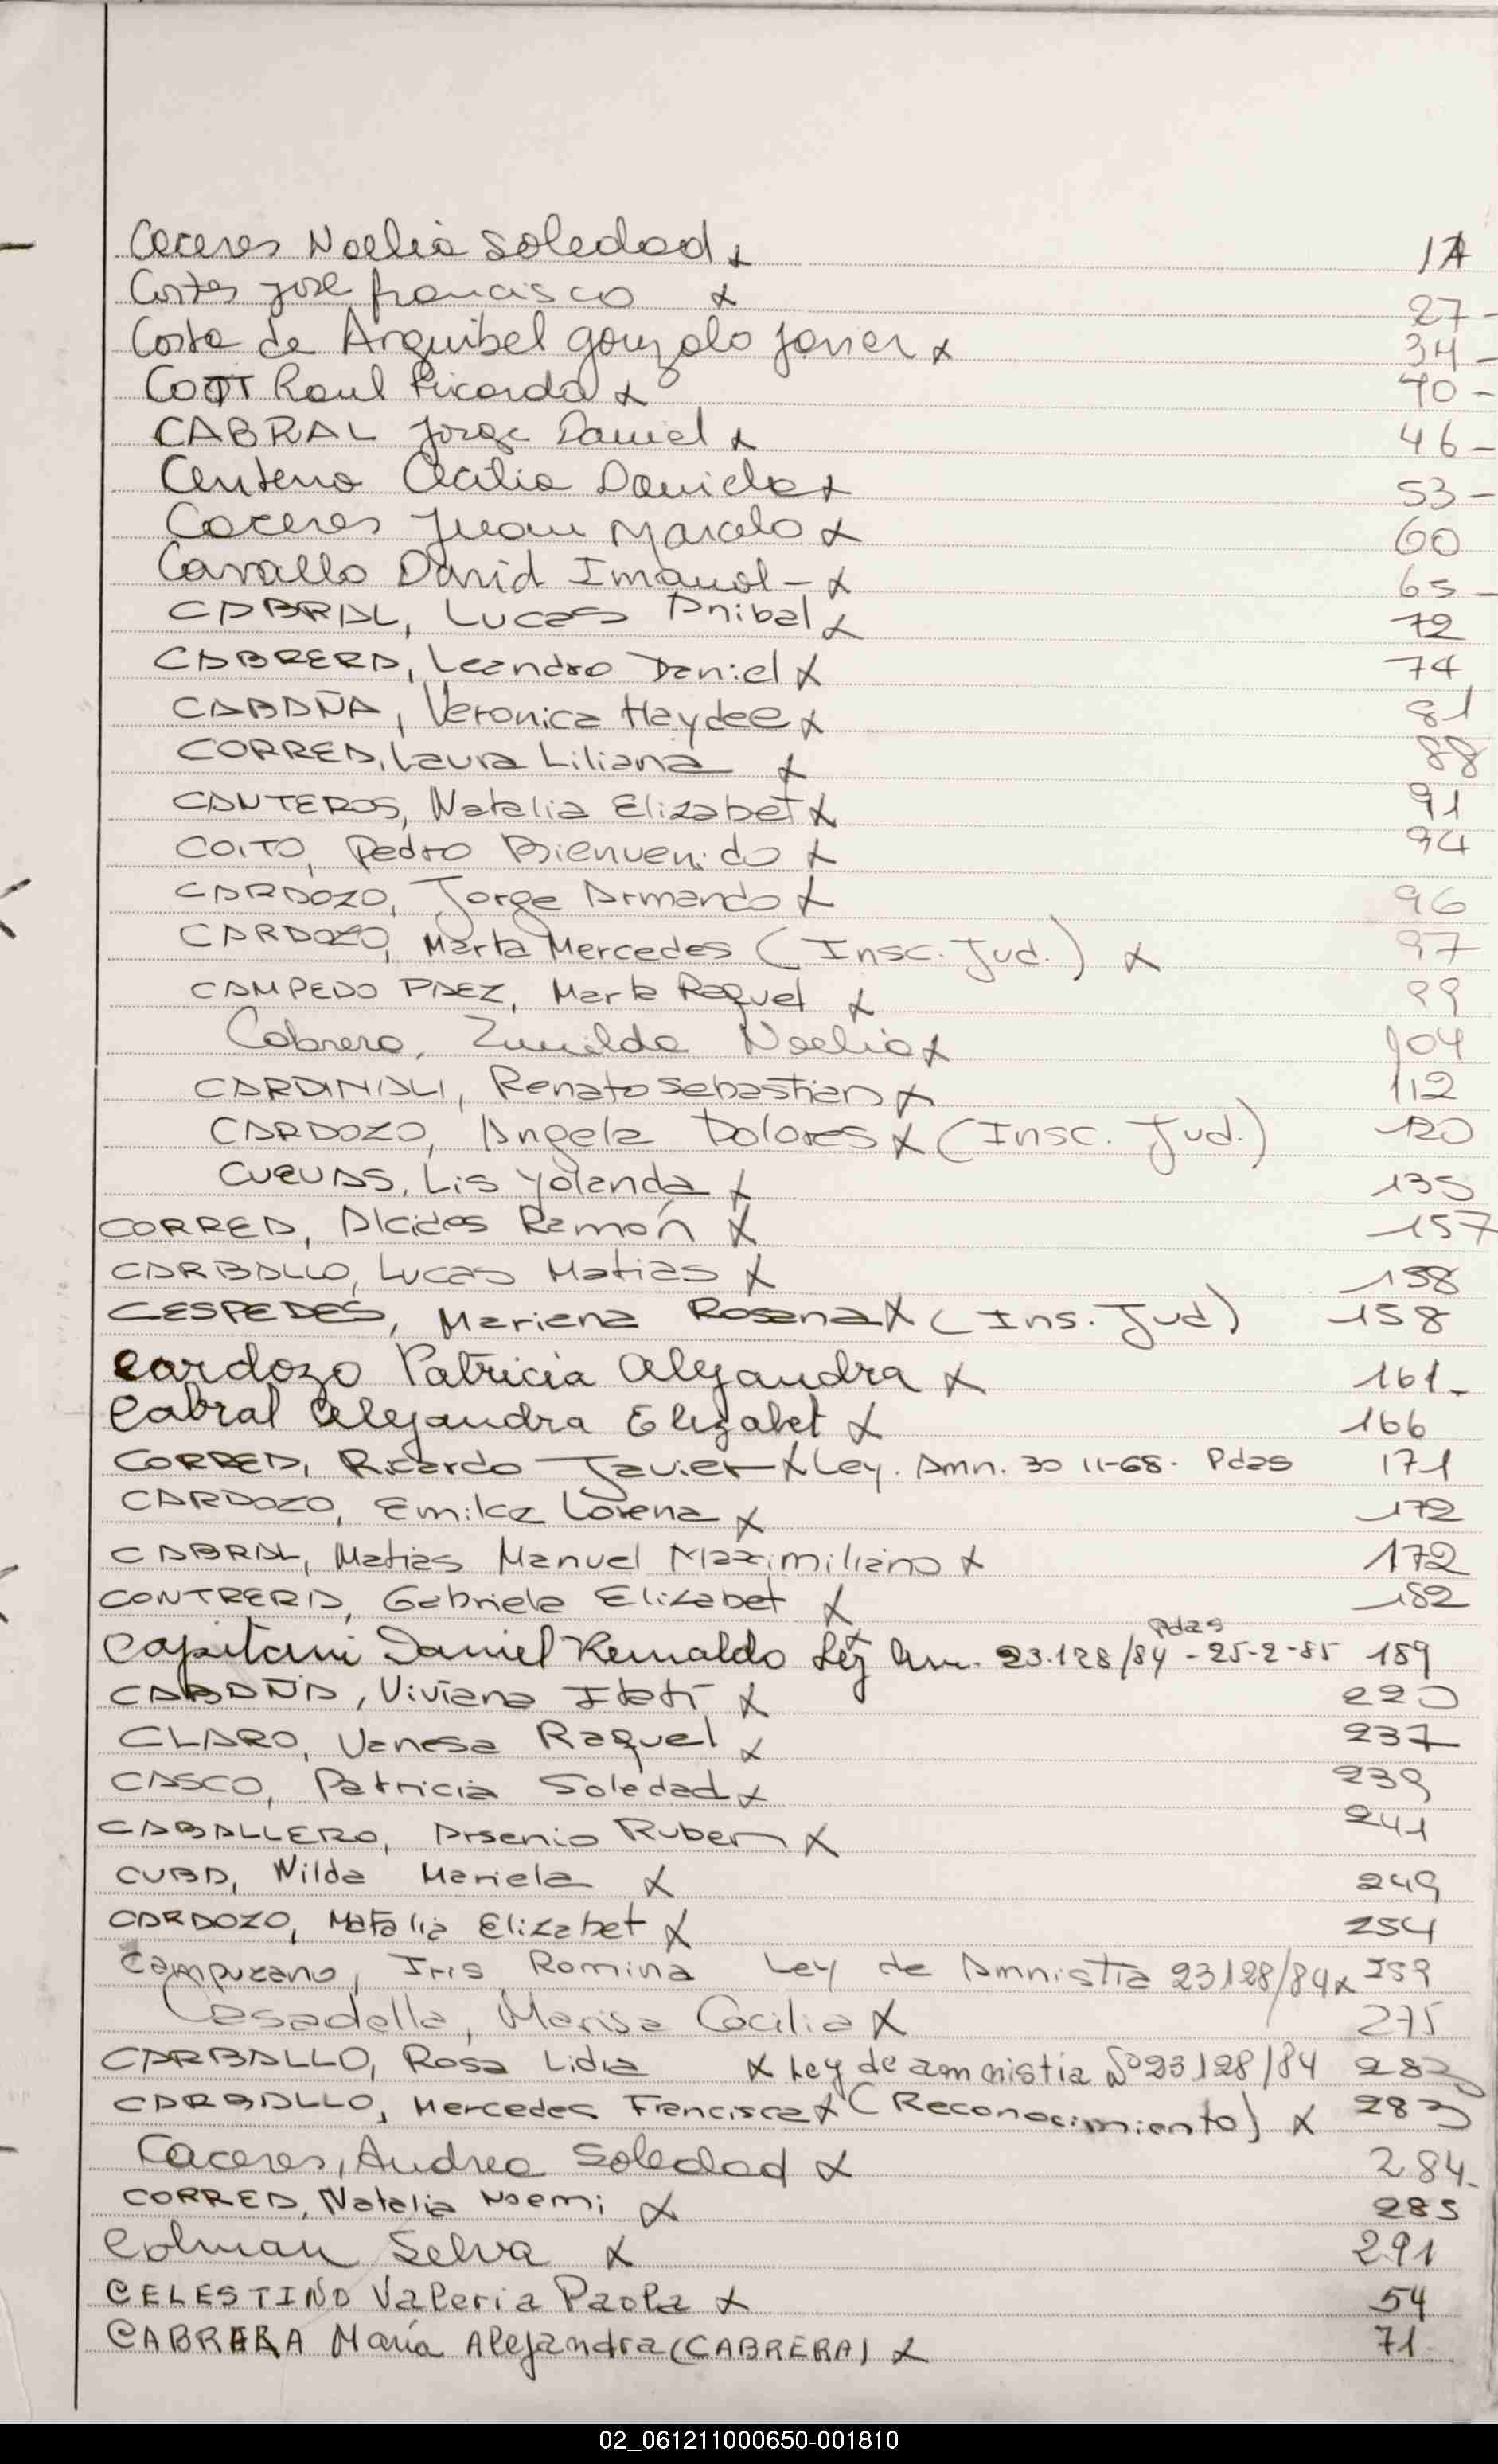 Caceres Noelia Soledad x 17
Cortes Jose francisco x 27 -
Costa de Arguibel gonzalo javier x 34 -
COTT Raul Ricardo x 40 -
CABRAL Jorge Daniel x 46 -
Centeno Cecilia Daniela x 53 -
Caceres Juan Marcelo x 60
Cavallo David Imanol - x 65 -
CABRAL, Lucas Anibal x 72
CABRERA, Leandro Daniel x 74
CABAÑA, Veronica Haydee x 81
CORREA, Laura Liliana x 88
CANTEROS, Natalia Elizabet x 91
COITO, Pedro Bienvenido x 94
CARDOZO, Jorge Armando x 96
CARDOZO, Marta Mercedes (Insc. Jud.) x 97
CAMPEDO PAEZ, Marta Raquel x 99
Cabrera, Zunilda Noelia x 104
CARDINALI, Renato Sebastian x 112
CARDOZO, Angela Dolores x (Insc. Jud.) 120
CUEVAS, Lis Yolanda x 135
CORREA, Alcides Ramón x 157
CARBALLO, Lucas Matias x 158
CESPEDES, Mariana Rosana x (Ins. Jud) 158
Cardozo Patricia Alejandra x 161 -
Cabral Alejandra Elizabet x 166
CORREA, Ricardo Javier x Ley. Amn. 30 11-68. Pdas 171
CARDOZO, Emilce Lorena x 172
CABRAL, Matias Manuel Maximiliano x 172
CONTRERA, Gabriela Elizabet x 182
Capitani Daniel Reinaldo x Ley Am. 23.128/84 - Pdas 25-2-85 189
CABAÑA, Viviana Itatí x 220
CLARO, Vanesa Raquel x 237
CASCO, Patricia Soledad x 239
CABALLERO, Arsenio Ruben x 241
CUBA, Nilda Mariela x 249
CARDOZO, Natalia Elizabet x 254
Campuzano, Iris Romina Ley de Amnistia 23128/84 x 259
Casadella, Marisa Cecilia x 275
CARBALLO, Rosa Lidia x Ley de amnistia Nº 23128/84 282
CARBALLO, Mercedes Francisca x (Reconocimiento) x 283
Caceres, Andrea Soledad x 284 -
CORREA, Natalia Noemi x 285
Colman Selva x 291
CELESTINO Valeria Paola x 54
CABRARA María Alejandra (CABRERA) x 71
02_061211000650-001810